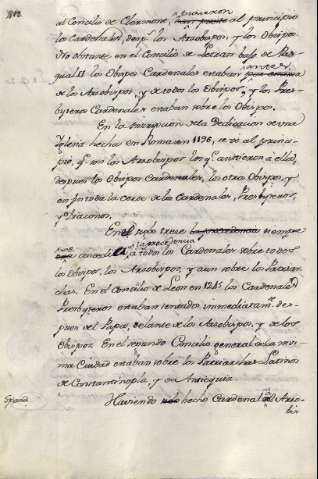 al Concilio de Clermont, pusieron al principio
los Cardenales, desp.s los Arzobispos, y los Obispos.
No obstante, en el Concilio de Letran bajo de Pas
qual II los Obispos Cardenales estaban antes
de los Arzobispos, y de todos los Obispos, y los Pres
byteros Cardenales estaban sobre los Obispos.
En la inscripcion de la Dedicacion de una
Iglesia hecha en Roma en 1196, se vé al princi
pio, q.e son los Arzobispos los q.e asistieron a ella,
despues los Obispos Cardenales, los otros Obispos, y
en fin toda la cerca de los Cardenales, Presbyteros,
y Diaconos.
En el siglo trece la precedencia siempre
fue concedida la precedencia a todos los Cardenales sobre todos
los Obispos, los Arzobispos, y aun sobre los Patriar
cas. En el Concilio de Leon en 1245 los Cardenales
Presbyteros estaban sentados inmediatam.te des
pues del Papa, delante de los Arzobispos, y de los
Obispos. En el segundo Concilio general en la mis
ma Ciudad estaban sobre los Patriarchas Latinos
de Constantinopla, y de Antioquia.
España
Haviendo hecho Cardenal al Arzo
bis